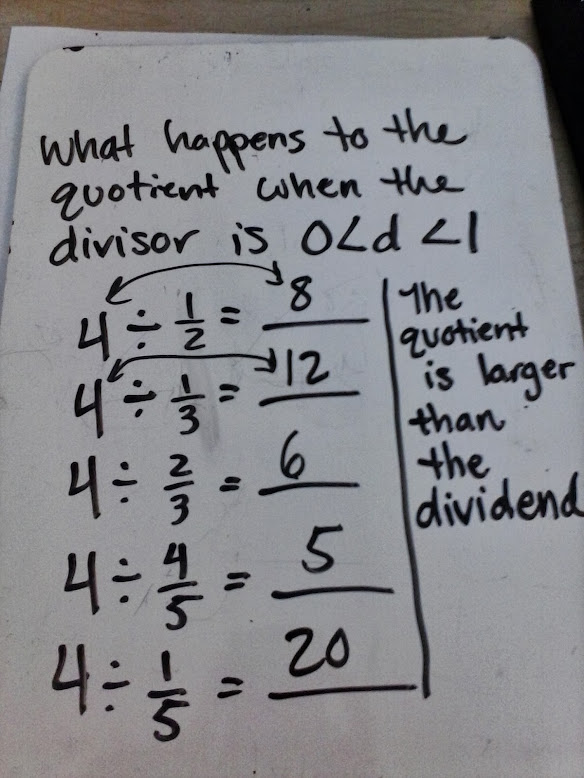 What happens to the
quotient when the
divisor is 0<d<1
4 ÷ 1/2 = 8
4 ÷ 1/3 = 12
4 ÷ 2/3 = 6
4 ÷ 4/5 = 5
4 ÷ 1/5 = 20
The
quotient
is larger
than
the
dividend